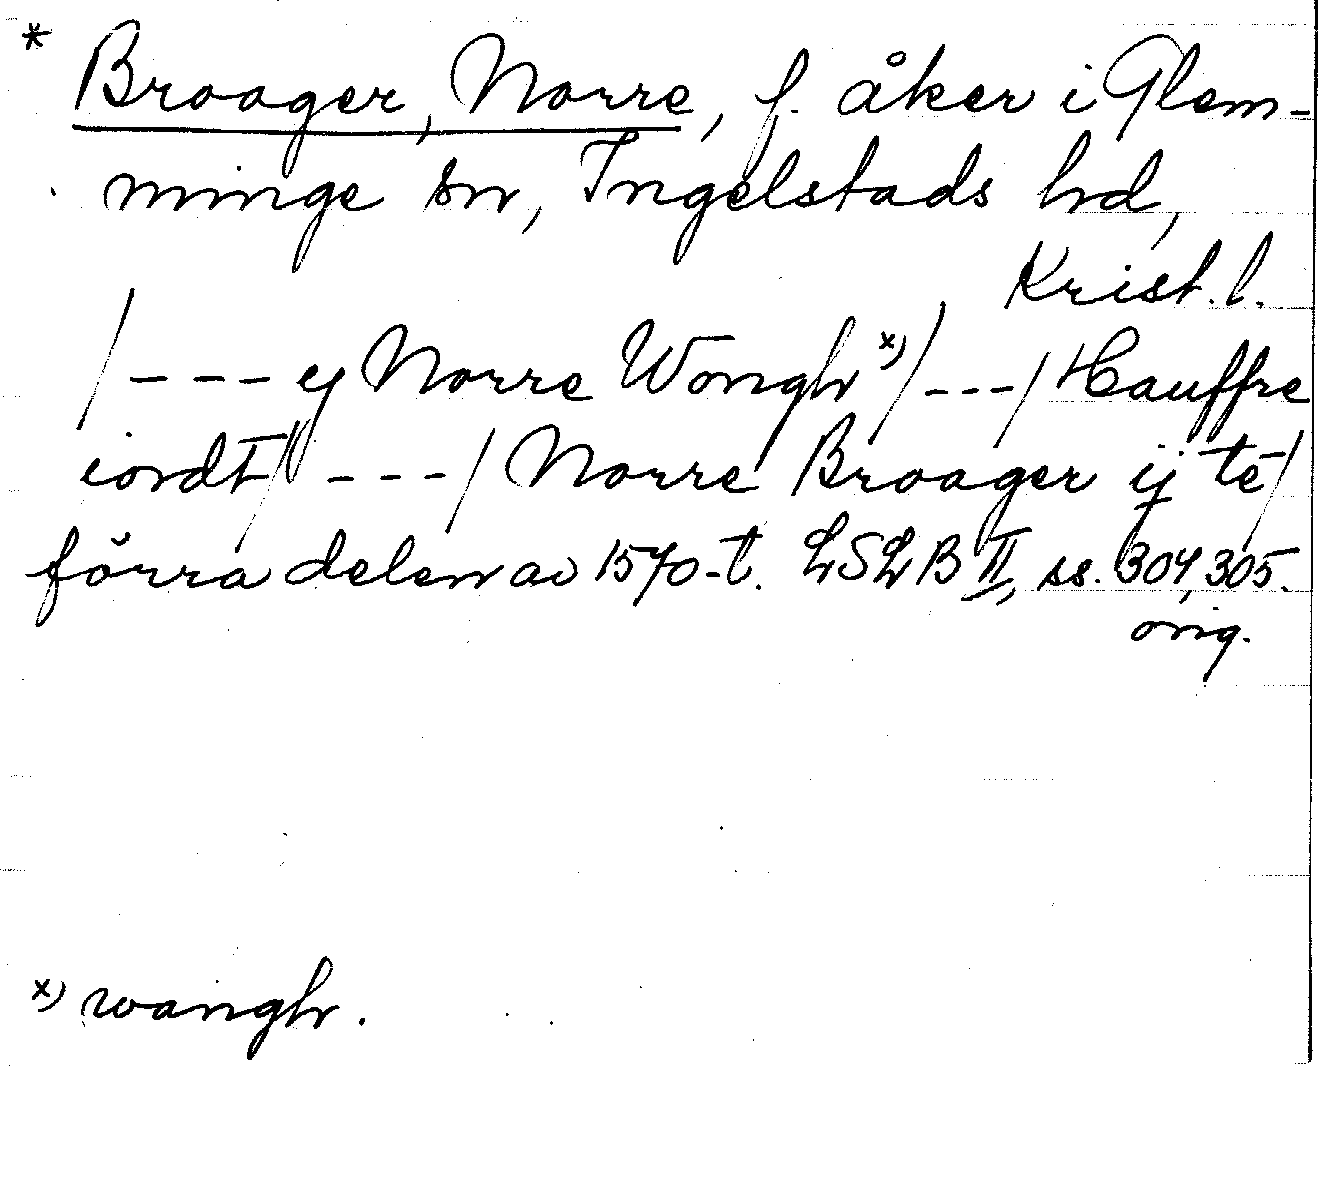 * Broager, Norre, f. åker i Glem-
minge sn, Ingelstads hd,
Krist. l.
/--- ej Norre Wongh x)/---/ Hauffre
iordt/ ---/ Norre Broager ij te/
förra delen av 1570-t. LSLB II, ss. 304, 305.
orig.
x) wangh.